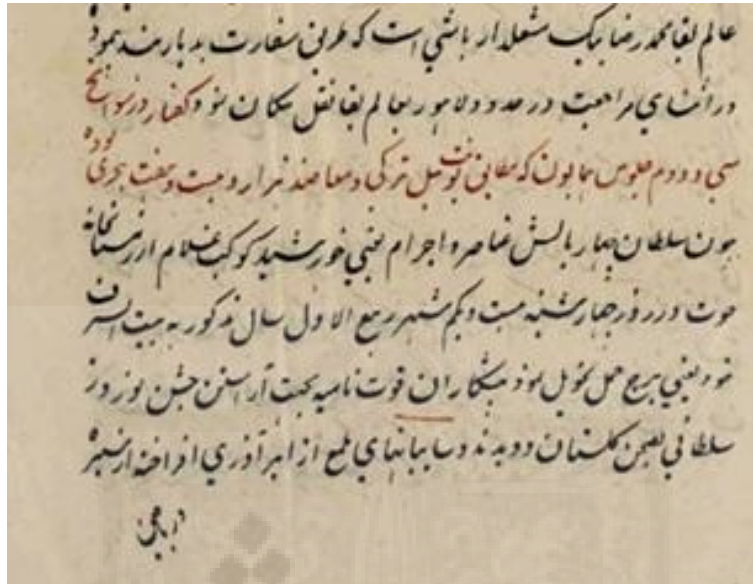 عالم بقا محمد رضا بیک مشعلدار باشی است که طریق سفارت بدیار هند پیموده
در اثنای مراجعت در حدود لاهور بعالم بقا نقل مکان نمود گفتار در سوانح
سی و دوم جلوس همایون که مطابق تونت ئیل ترکی و معاضد هزار و بیست و هفت هجری بوده
چون سلطان چهار بالش عناصر و اجرام یعنی خورشید کوکب غلام از زمستانخانه
حوت در روز چهارشنبه بیست و یکم شهر ربیع الاول سال مذکور به بیت الشرف
خود یعنی برج حمل تحویل نمود پیشکاران قوت نامیه بجهت آراستن جشن نوروز
سلطانی بصحن گلستان دویدند و سایبانهای ملمع از ابر آذری افراخته از سبزه